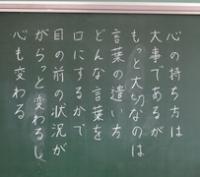 心の持ち方は
大事であるが
もっと大切なのは
言葉の遣い方
どんな言葉を
口にするかで
目の前の状況が
がらっと変わるし
心も変わる